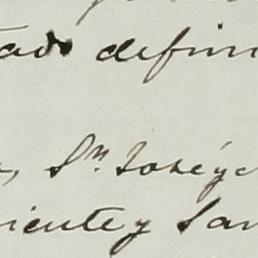 tado defini
, Sn. José y
iente y San